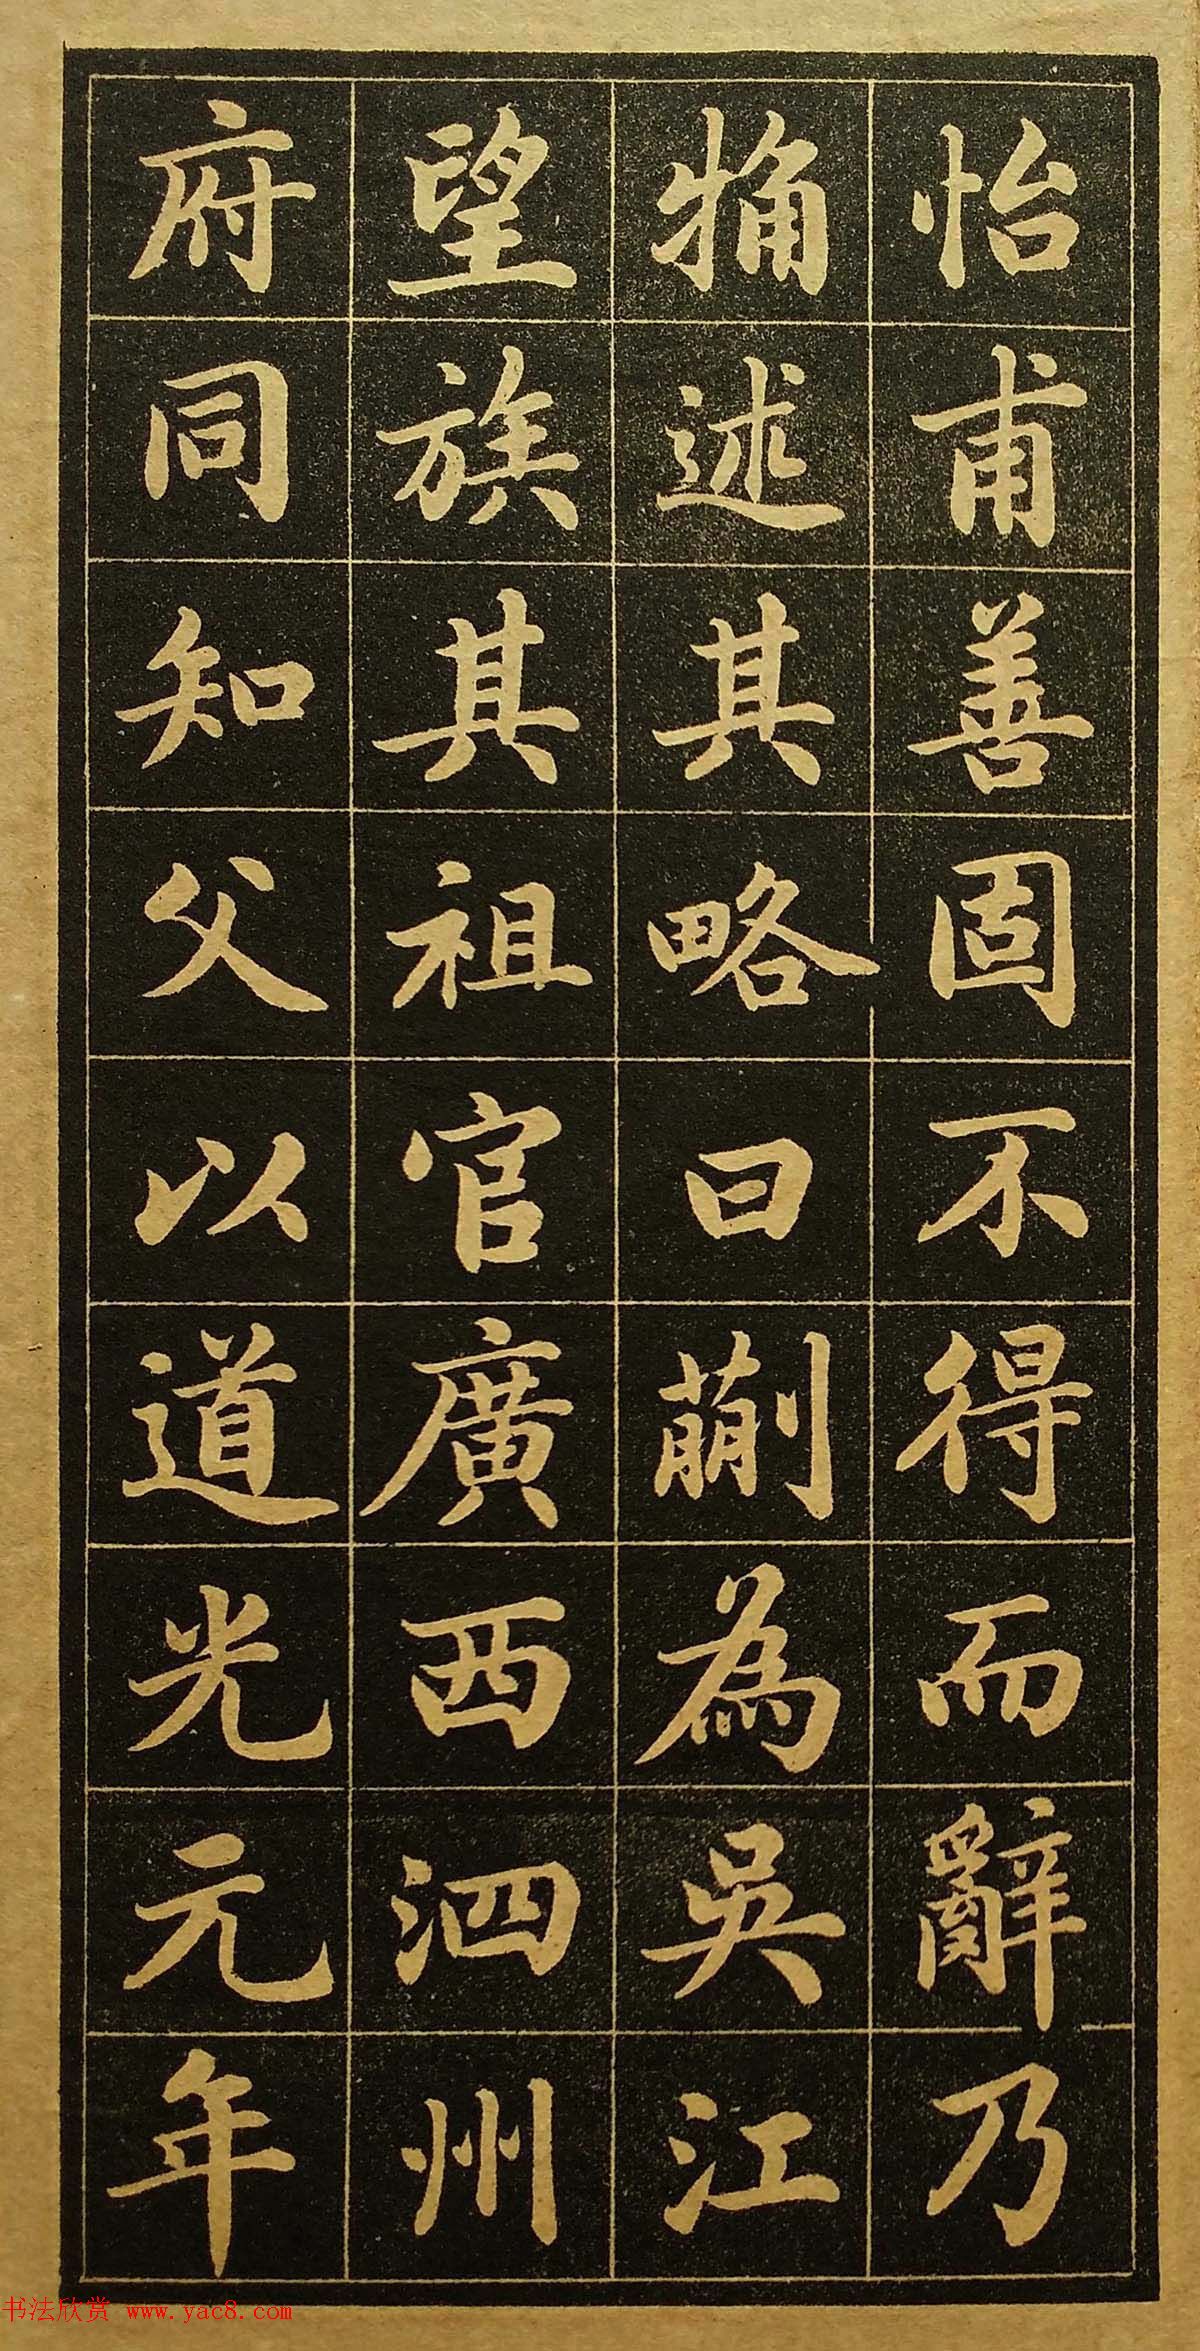 怡甫善固不得而辭乃
觕述其略曰蒯為吳江
望族其祖官廣西泗州
府同知父以道光元年
书法欣赏 www.yac8.com